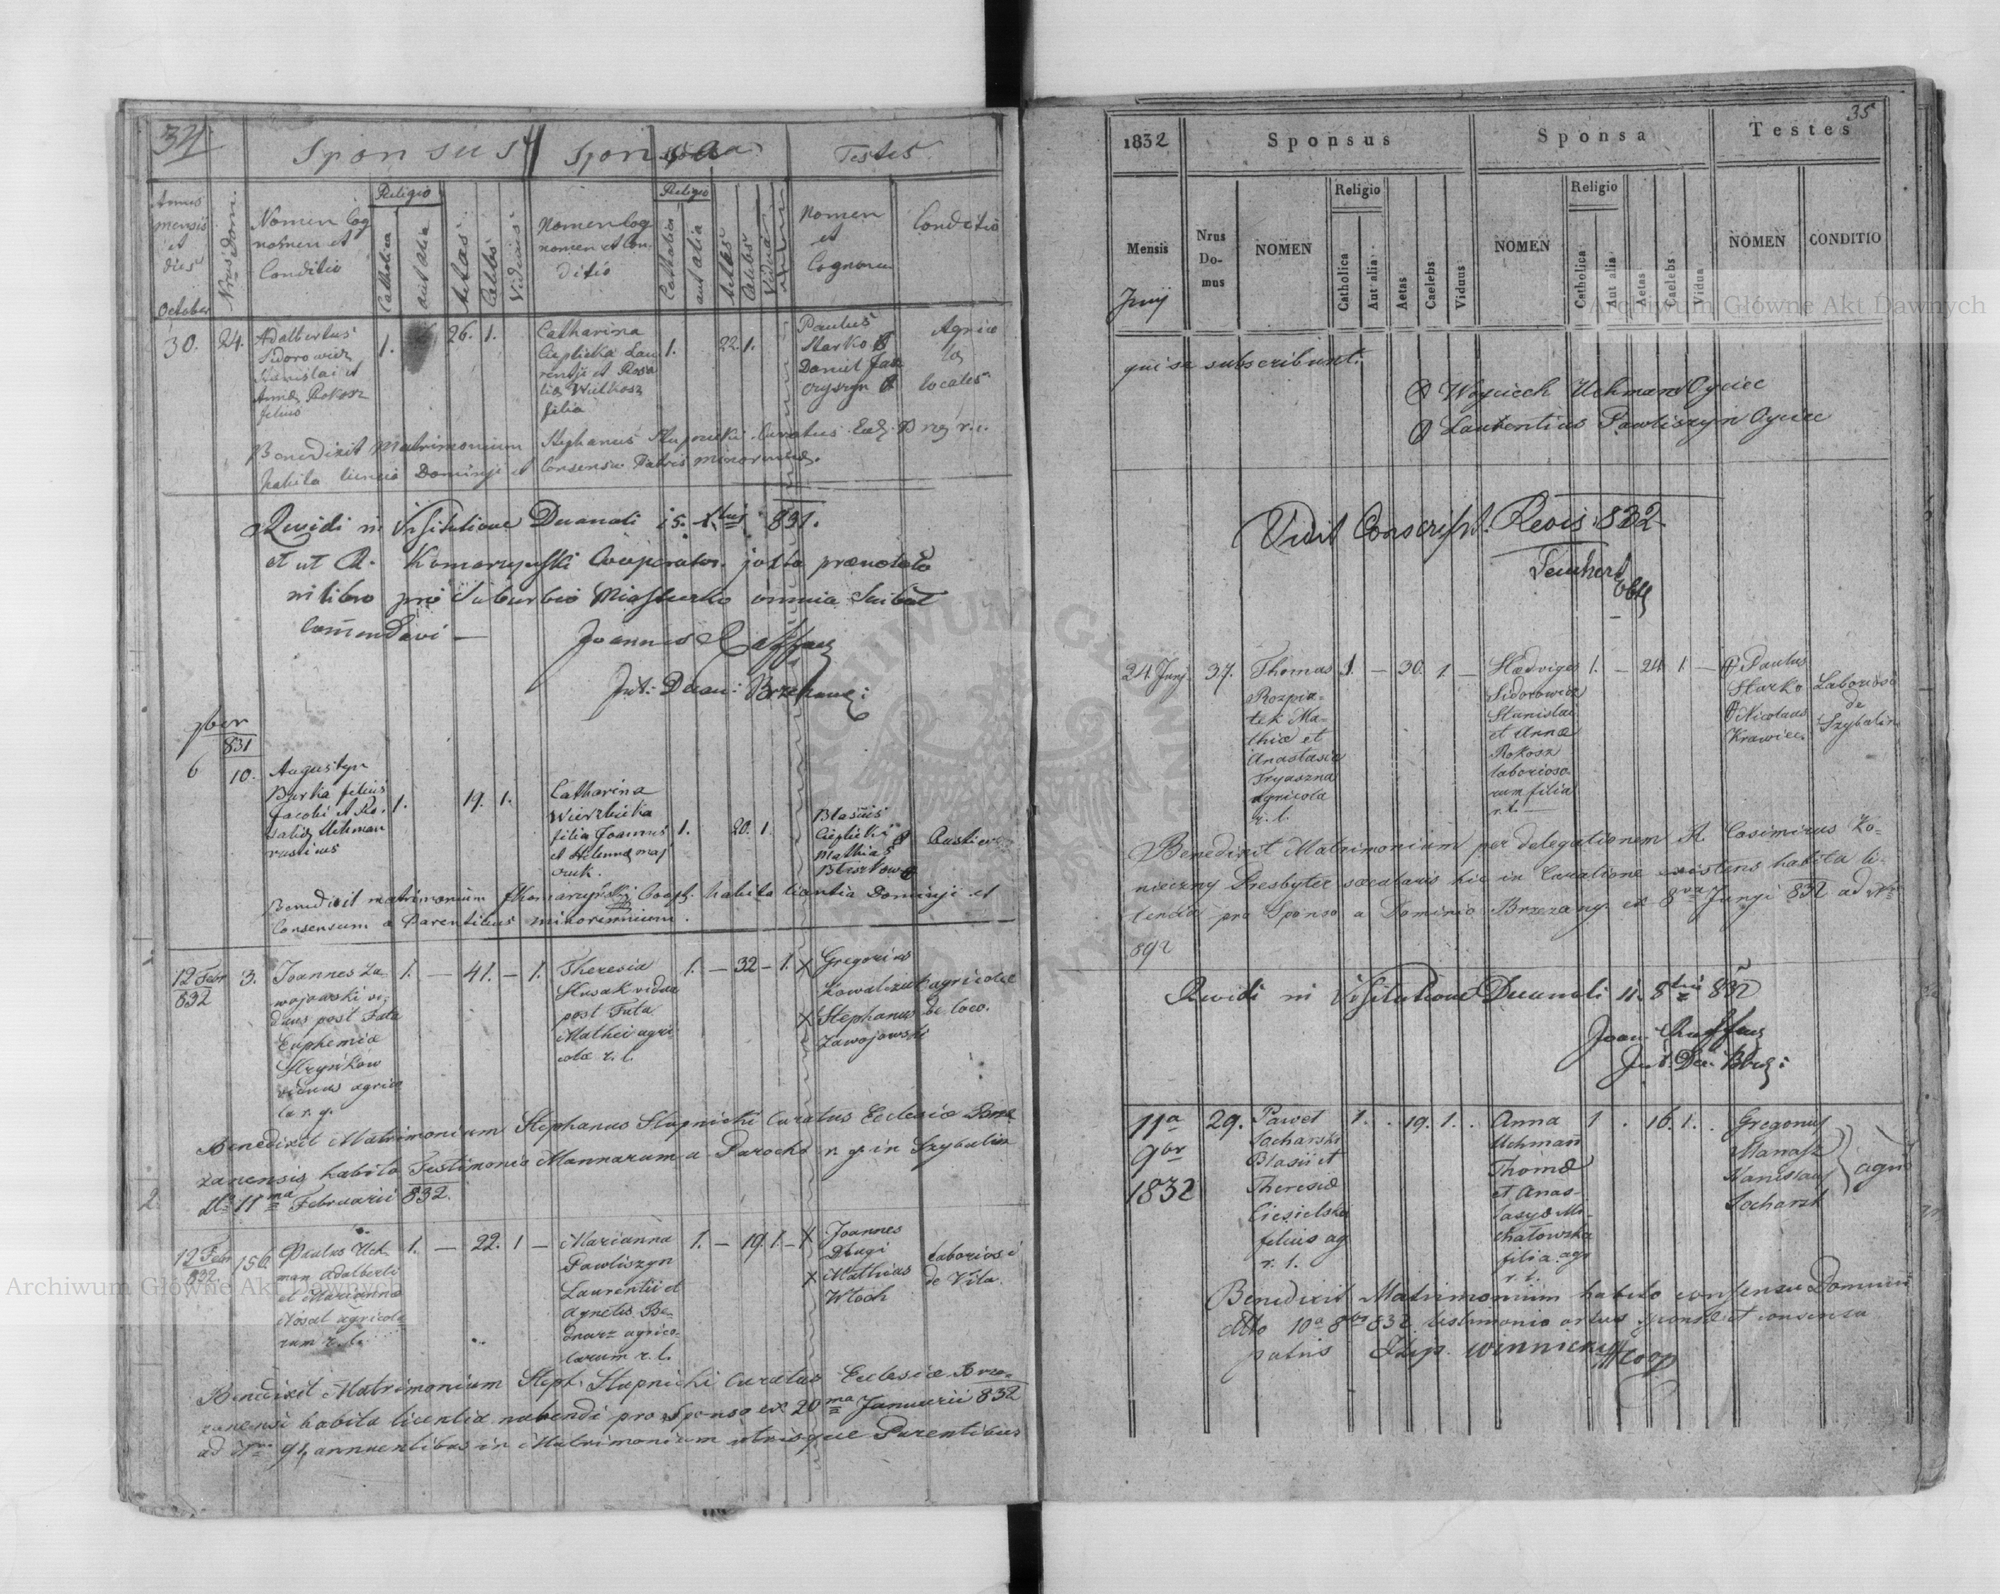 34
Sponsus
Sponsa
Testes
Annus
mensis
et
dies
Nrus Dom.
Nomen Cog
nomen et
Conditio
Religio
Catholica
aut alia
Aetas
Caelebs
Viduus
Nomen Cog
nomen et Con-
ditio
Religio
Catholica
aut alia
Aetas
Caelebs
Vidua
Nomen
et
Cognomen
Conditio
October
30. 24. Adalbertus
Sidorowicz
Stanislai et
Annae Rokosz
filius
1. 26. 1.
Catharina
Cieplicka Lau
rentji et Rosa
lia Wilkosz
filia
1. 22. 1.
Paulus
Starko
Daniel
Agrico
lae
locales
Benedixit Matrimonium Stephanus Stupnicki Curatus Eccl. Brzez r. l.
habita licencia Dominii et Consensu Patris minorennis.
Revidi in Visitatione Decanali 15. 831.
et ut R. Komarzynski Cooperator juxta praenotata
in libro pro Suburbio Miasteczko omnia scribat
commendavi —
Joannes
Brzezan:
9ber
831
6 10. Augustyn
Burka filius
Jacobi et Ro-
salia Uchman
rusticus
1. 19. 1.
Catharina
Wierzbicka
filia Joannis
et Helenna maj
czuk.
1. 20. 1.
Blasius
Cieplicki
Mathias
Bluszkow
Rustici
Benedixit matrimonium Komarzyński Coop. habita licentia Dominji et
Consensum a Parentibus minorennium.
12 Febr
832
3. Joannes Za-
wojowski vi-
duus post Fata
Euphemiae
agrico
la r. g.
1. — 41. — 1.
Theresia
Slusak vidua
post Fata
Mathei agri-
colae r. l.
1. — 32 — 1.
X Gregorius
Kowalczuk
X Stephanus
Zawojowski
agricolae
de loco.
Benedixit Matrimonium Stephanus Stupnicki Curatus Ecclesiae Brze
zanensis habito Testimonio Bannorum a Parocho r. g. in Szybalin
dto 11ma Februarii 832.
12 Febr
832
156. Paulus Uch-
man Adalberti
et Mariannae
Nosal agricola
rum r. l.
1. — 22. 1 —
Marianna
Pawliszyn
Laurentii et
Agnetis Be-
dnarz agrico-
larum r. l.
1. — 19. 1. —
X Joannes
Długi
X Mathias
Wloch
Laboriosi
de Villa.
Benedixit Matrimonium Steph. Stupnicki Curatus Ecclesiae Brze-
zanensi habita licentia nubendi pro Sponso ex 20ma Januarii 832
ad Nrum 91, annuentibus in Matrimonium utrisque Parentibus
35
1832
Sponsus
Sponsa
Testes
Mensis
Nrus
Do-
mus
NOMEN
Religio
Catholica
Aut alia.
Aetas
Caelebs
Viduus
NOMEN
Religio
Catholica
Aut alia.
Aetas
Caelebs
Vidua
NOMEN
CONDITIO
Junij
qui se subscribunt.
Woyciech Uchman Oyciec
Laurentius Pawliszyn Oyciec
Vidit Conscript. Revis. 832
24 Junj. 37. Thomas
Rozpia-
tek Ma-
thiae et
Anastasiae
Tryaszna
agricola
r. l.
1. — 30. 1. —
Hedviges
Sidorowicz
Stanislai
et Annae
Rokosz
laborioso-
rum filia
r. l.
1. — 24. 1. —
Paulus
Starko
Nicolaus
Krawiec
Laboriosi
de
Szybalin
Benedixit Matrimonium per delegationem R. Casimirus Zo-
nieczny Presbyter saecularis hic in Curatione existens habita li-
tencia pro Sponso a Dominio Brzezany ex 8va Junji 832 ad Nr
892
Revidi in Visitatione Decanali 11. 8bris 832
11a
9br
1832
29. Paweł
Socharski
Blasii et
Theresiae
Ciesielska
filius ag
r. l.
1. . 19. 1. .
Anna
Uchmañ
Thomae
et Anas-
tasyae Mi-
chałowska
filia agr
r. l.
1 . 16. 1. .
Gregorius
Manasz
Stanislaus
Socharsk
agri
Benedixit Matrimonium habito consensu Dominii
dto 10a 8bris 832 testimonio ortus sponsae et consensu
patris Winnicki Coop
Archiwum Główne Akt Dawnych
Archiwum Główne Akt Dawnych